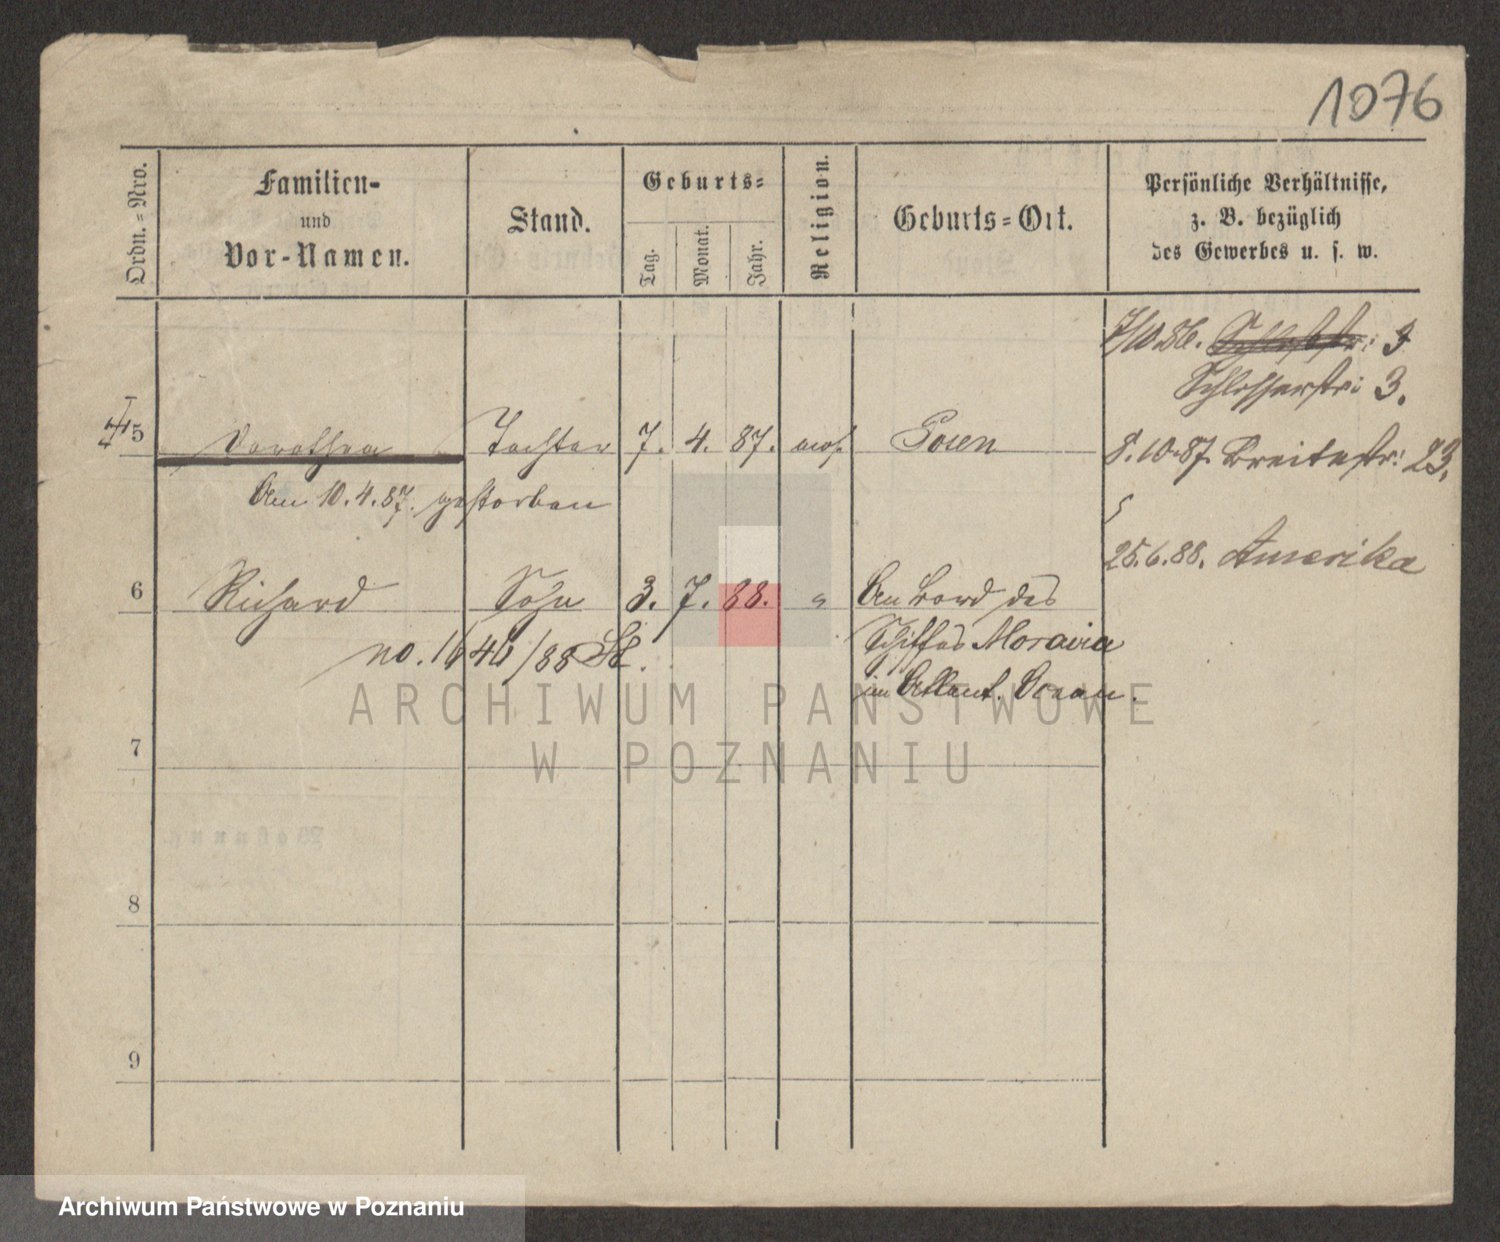 1076
Ordn.=Nro.
Familien-
und
Vor-Namen.
Stand.
Geburts=
Tag.
Monat.
Jahr.
Religion.
Geburts=Ort.
Persönliche Verhältnisse,
z. B. bezüglich
des Gewerbes u. s. w.
7/10.86. Schloßstr: 3
Schlosserstr: 3.
5 Dorothea Tochter 7. 4. 87. mos. Posen
8.10.87. Breitestr: 23.
Am 10.4.87. gestorben
25.6.88. Amerika
6 Richard Sohn 3. 7. 88. " An Bord des
Schiffes Moravia
no. 1646/88 St.
im Atlant. Ocean.
ARCHIWUM PAŃSTWOWE
W POZNANIU
7
8
9
Archiwum Państwowe w Poznaniu